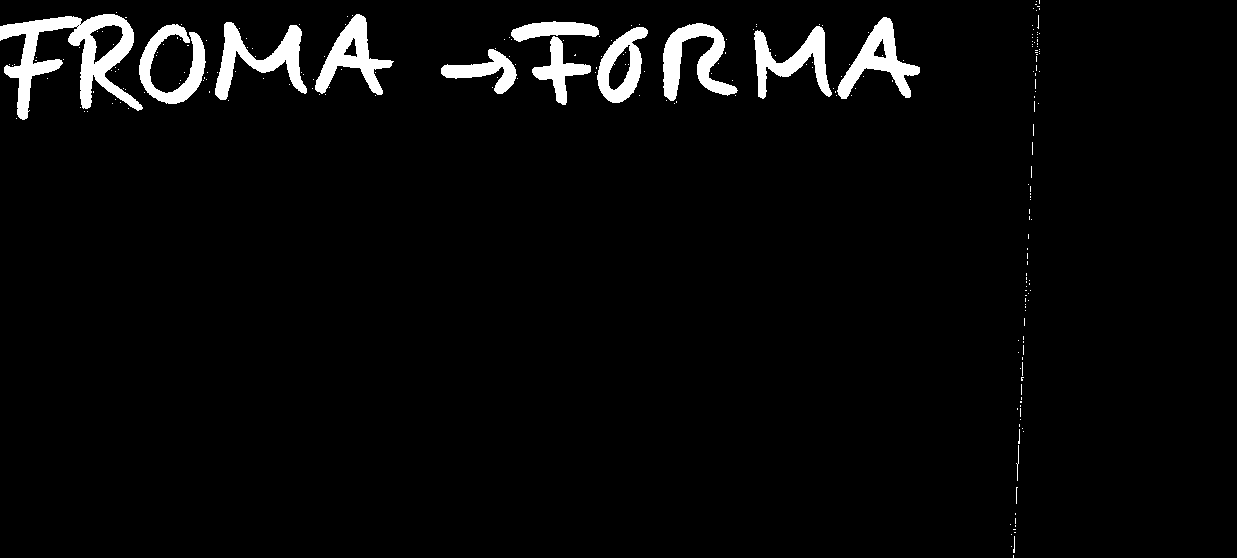 FROMA → FORMA